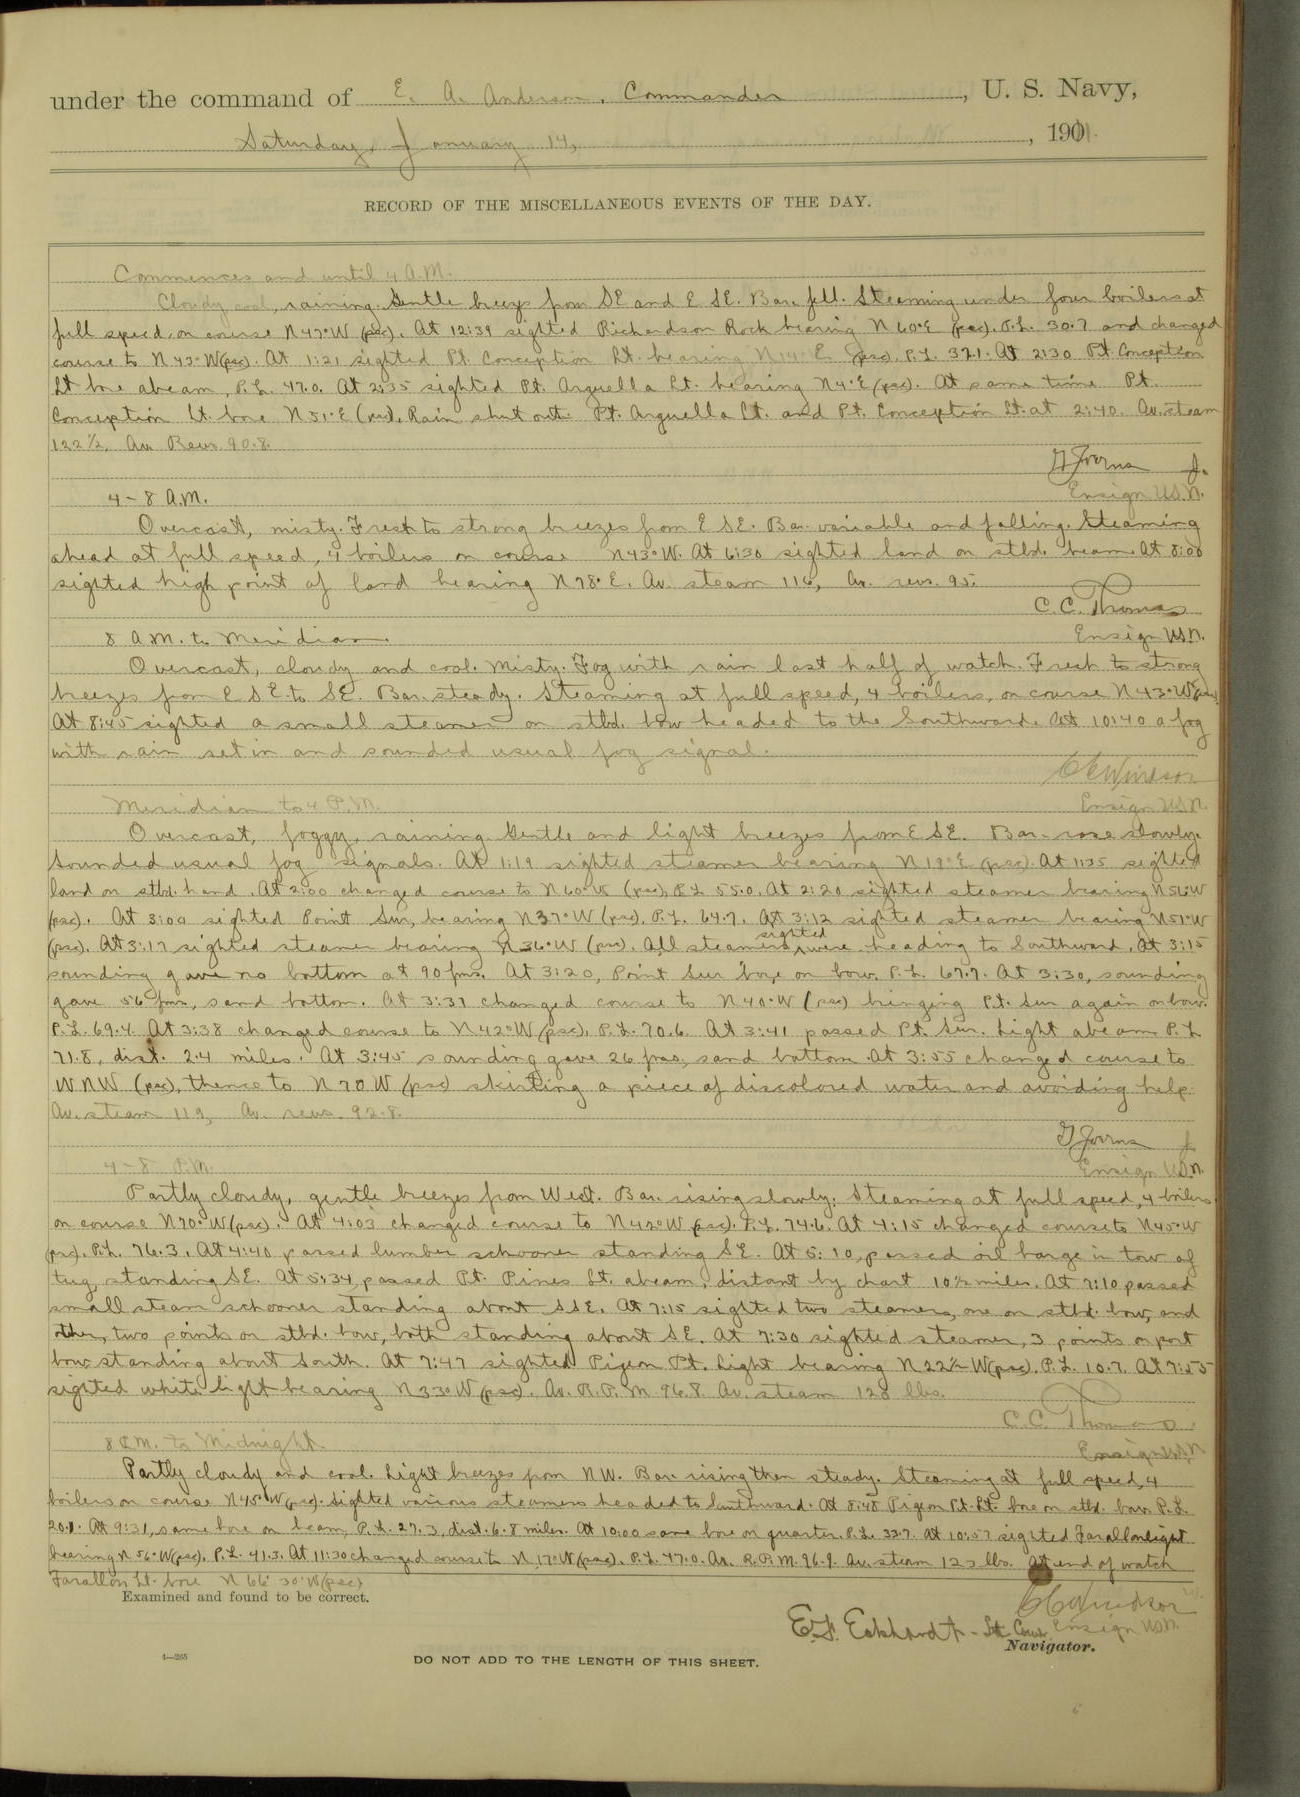 under the command of E. A. Anderson, Commander, U. S. Navy,
Saturday, January 14, 1911.
RECORD OF THE MISCELLANEOUS EVENTS OF THE DAY.
Commences and until 4 A.M.
Cloudy, cool, raining. Gentle breeze from SE and E SE. Bar. fell. Steaming under four boilers at
full speed, on course N 47° W (psc). At 12:39 sighted Richardson Rock bearing N 60° E (psc). P.L. 30.7 and changed
course to N 43° W (psc). At 1:21 sighted Pt. Conception Lt. bearing N 14° E (psc). P.L. 32.1. At 2:30 Pt. Conception
Lt bore abeam, P.L. 47.0. At 2:35 sighted Pt. Arguella Lt. bearing N 4° E (psc). At same time Pt.
Conception Lt. bore N 51° E (psc). Rain shut out Pt. Arguella Lt. and Pt. Conception Lt. at 2:40. Av. steam
122 1/2. Av. Revs. 90.8.
Ensign U.S.N.
4 - 8 A.M.
Overcast, misty. Fresh to strong breezes from E SE. Bar. variable and falling. Steaming
ahead at full speed, 4 boilers on course N 43° W. At 6:30 sighted land on stbd. beam. At 8:00
sighted high point of land bearing N 78° E. Av. steam 116, Av. revs. 95.
C. C. Thomas
Ensign U.S.N.
8 A.M. to Meridian.
Overcast, cloudy and cool. Misty. Fog with rain last half of watch. Fresh to strong
breezes from E SE to SE. Bar. steady. Steaming at full speed, 4 boilers, on course N 43° W (psc).
At 8:45 sighted a small steamer on stbd. bow headed to the Southward. At 10:40 a fog
with rain set in and sounded usual fog signal.
C C Windsor
Ensign U.S.N.
Meridian to 4 P.M.
Overcast, foggy, raining. Gentle and light breezes from E SE. Bar. rose slowly.
Sounded usual fog signals. At 1:19 sighted steamer bearing N 19° E (psc). At 1:35 sighted
land on stbd. hand. At 2:00 changed course to N 60° W (psc), P.L. 55.0. At 2:20 sighted steamer bearing N 56° W
(psc). At 3:00 sighted Point Sur, bearing N 37° W (psc). P.L. 64.7. At 3:12 sighted steamer bearing N 51° W
(psc). At 3:17 sighted steamer bearing N 36° W (psc). All steamers sighted were heading to Southward. At 3:15
sounding gave no bottom at 90 fms. At 3:20, Point Sur bore, on bow. P.L. 67.7. At 3:30, sounding
gave 56 fms, sand bottom. At 3:31 changed course to N 40° W (psc) bringing Pt. Sur again on bow.
P.L. 69.4. At 3:38 changed course to N 42° W (psc). P.L. 70.6. At 3:41 passed Pt. Sur. Light abeam P.L.
71.8, dist. 2.4 miles. At 3:45 sounding gave 26 fms, sand bottom. At 3:55 changed course to
WNW (psc), thence to N 70 W (psc) skirting a piece of discolored water and avoiding kelp.
Av. steam 119, Av. revs. 92.8.
Ensign U.S.N.
4 - 8 P.M.
Partly cloudy, gentle breezes from West. Bar. rising slowly. Steaming at full speed, 4 boilers
on course N 70° W (psc). At 4:03 changed course to N 42° W (psc). P.L. 74.6. At 4:15 changed course to N 45° W
(psc). P.L. 76.3. At 4:40, passed lumber schooner standing SE. At 5:10, passed oil barge in tow of
tug, standing SE. At 5:34, passed Pt. Pinos Lt. abeam, distant by chart 10 1/2 miles. At 7:10 passed
small steam schooner standing about SSE. At 7:15 sighted two steamers, one on stbd. bow, and
other, two points on stbd. bow, both standing about SE. At 7:30 sighted steamer, 3 points on port
bow standing about South. At 7:47 sighted Pigeon Pt. Light bearing N 22 1/2 W (psc). P.L. 10.7. At 7:55
sighted white light bearing N 33° W (psc). Av. R.P.M 96.8. Av. steam 128 lbs.
C. C. Thomas
Ensign U.S.N.
8 P.M. to Midnight
Partly cloudy and cool. Light breezes from NW. Bar. rising then steady. Steaming at full speed, 4
boilers on course N 45° W (psc). Sighted various steamers headed to Southward. At 8:48 Pigeon Pt. Lt. bore on stbd. bow. P.L.
20.1. At 9:31, same bore on beam, P.L. 27.3, dist. 6.8 miles. At 10:00 same bore on quarter. P.L. 33.7. At 10:57 sighted Farallon light
bearing N 56° W (psc). P.L. 41.3. At 11:30 changed course to N 17° W (psc). P.L. 47.0. Av. R.P.M. 96.9. Av. steam 123 lbs. At end of watch
Farallon Lt. bore N 66° 30' W (psc)
C C Windsor
Ensign U.S.N.
Examined and found to be correct.
E. G. Eckhardt
Navigator.
4—265
DO NOT ADD TO THE LENGTH OF THIS SHEET.